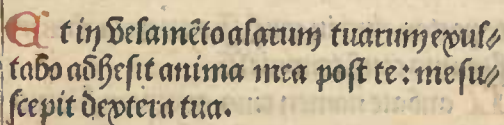 Et in velamēto alarum tuarum exul⸗
tabo adhesit anima mea post te: me su⸗
scepit dextera tua.